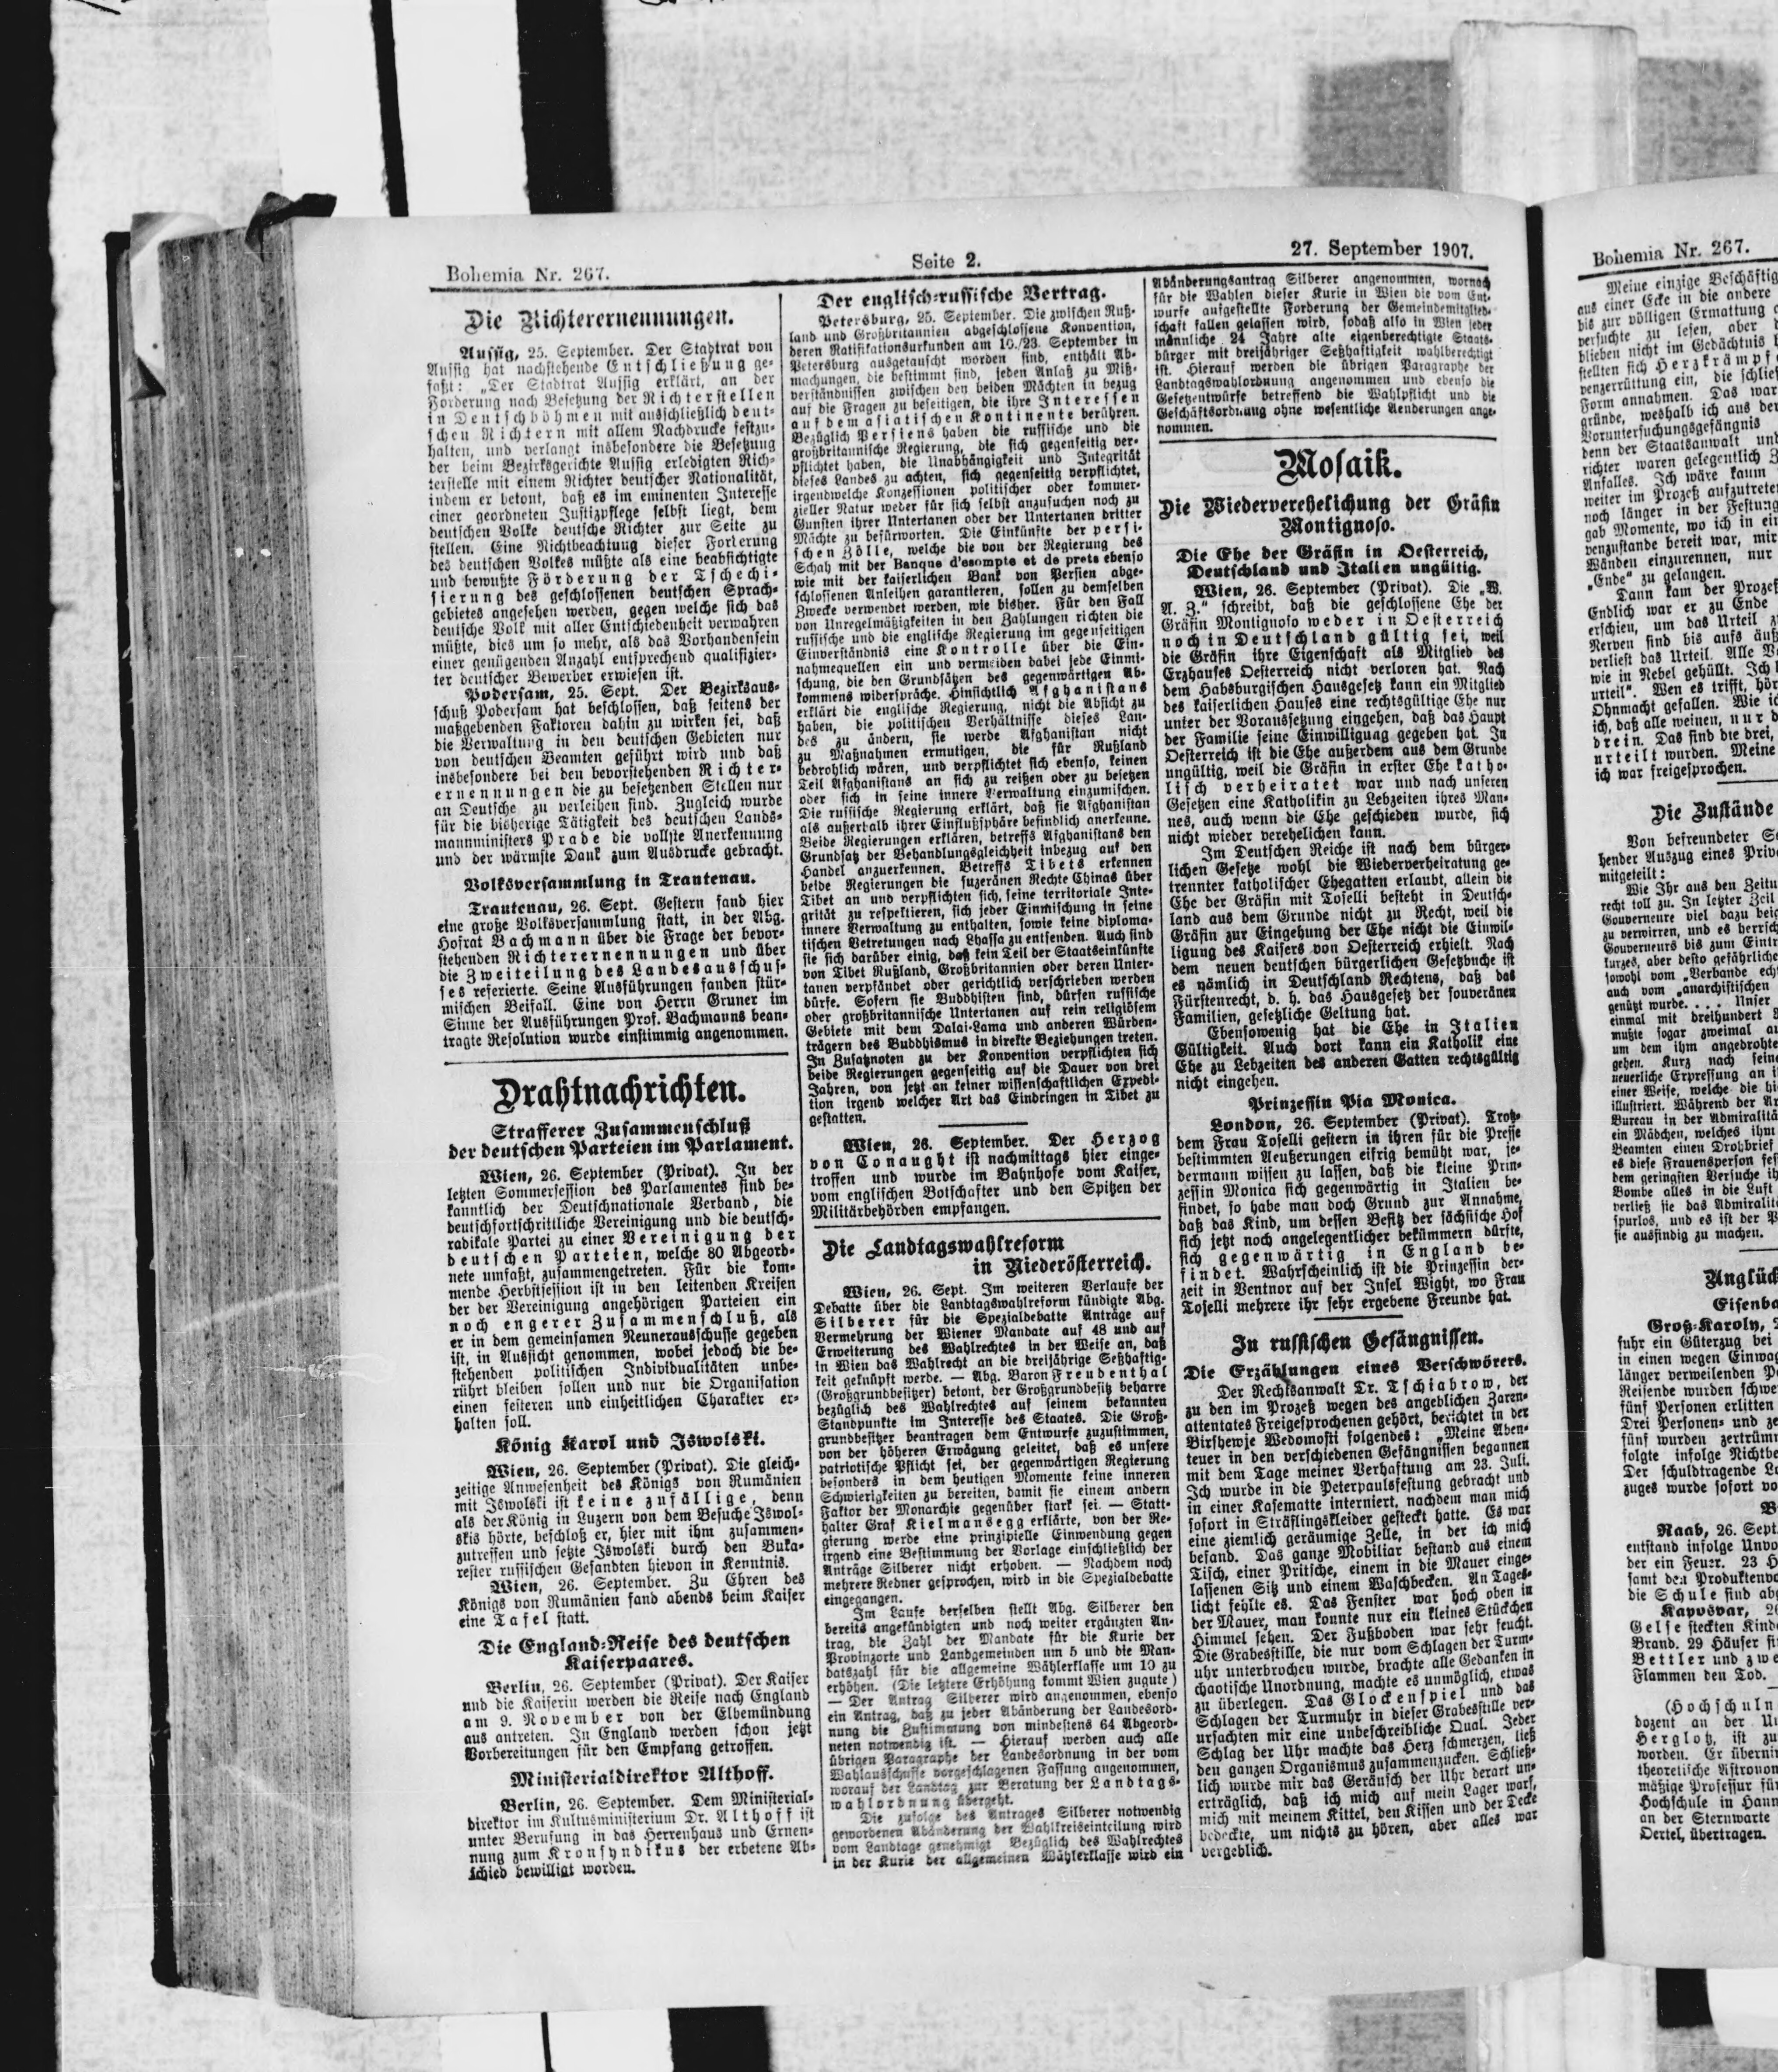 Bohemia Nr. 267.
Seite 2.
27. September 1907.
Die Richterernennungen.
Aussig, 25. September. Der Stadtrat von
Aussig hat nachstehende Entschließung ge-
faßt: „Der Stadtrat Aussig erklärt, an der
Forderung nach Besetzung der Richterstellen
in Deutschböhmen mit ausschließlich deut-
schen Richtern mit allem Nachdrucke festzu-
halten, und verlangt insbesondere die Besetzung
der beim Bezirksgerichte Aussig erledigten Rich-
terstelle mit einem Richter deutscher Nationalität,
indem er betont, daß es im eminenten Interesse
einer geordneten Justizpflege selbst liegt, dem
deutschen Volke deutsche Richter zur Seite zu
stellen. Eine Nichtbeachtung dieser Forderung
des deutschen Volkes müßte als eine beabsichtigte
und bewußte Förderung der Tschechi-
sierung des geschlossenen deutschen Sprach-
gebietes angesehen werden, gegen welche sich das
deutsche Volk mit aller Entschiedenheit verwahren
müßte, dies um so mehr, als das Vorhandensein
einer genügenden Anzahl entsprechend qualifizier-
ter deutscher Bewerber erwiesen ist.
Podersam, 25. Sept. Der Bezirksaus-
schuß Podersam hat beschlossen, daß seitens der
maßgebenden Faktoren dahin zu wirken sei, daß
die Verwaltung in den deutschen Gebieten nur
von deutschen Beamten geführt wird und daß
insbesondere bei den bevorstehenden Richter-
ernennungen die zu besetzenden Stellen nur
an Deutsche zu verleihen sind. Zugleich wurde
für die bisherige Tätigkeit des deutschen Lands-
mannministers Prade die vollste Anerkennung
und der wärmste Dank zum Ausdrucke gebracht.
Volksversammlung in Trautenau.
Trautenau, 26. Sept. Gestern fand hier
eine große Volksversammlung statt, in der Abg.
Hofrat Bachmann über die Frage der bevor-
stehenden Richterernennungen und über
die Zweiteilung des Landesausschus-
ses referierte. Seine Ausführungen fanden stür-
mischen Beifall. Eine von Herrn Gruner im
Sinne der Ausführungen Prof. Bachmanns bean-
tragte Resolution wurde einstimmig angenommen.
Drahtnachrichten.
Strafferer Zusammenschluß
der deutschen Parteien im Parlament.
Wien, 26. September (Privat). In der
letzten Sommersession des Parlamentes sind be-
kanntlich der Deutschnationale Verband, die
deutschfortschrittliche Vereinigung und die deutsch-
radikale Partei zu einer Vereinigung der
deutschen Parteien, welche 80 Abgeord-
nete umfaßt, zusammengetreten. Für die kom-
mende Herbstsession ist in den leitenden Kreisen
der der Vereinigung angehörigen Parteien ein
noch engerer Zusammenschluß, als
er in dem gemeinsamen Neunerausschusse gegeben
ist, in Aussicht genommen, wobei jedoch die be-
stehenden politischen Individualitäten unbe-
rührt bleiben sollen und nur die Organisation
einen festeren und einheitlichen Charakter er-
halten soll.
König Karol und Iswolski.
Wien, 26. September (Privat). Die gleich-
zeitige Anwesenheit des Königs von Rumänien
mit Iswolski ist keine zufällige, denn
als der König in Luzern von dem Besuche Iswol-
skis hörte, beschloß er, hier mit ihm zusammen-
zutreffen und setzte Iswolski durch den Buka-
rester russischen Gesandten hievon in Kenntnis.
Wien, 26. September. Zu Ehren des
Königs von Rumänien fand abends beim Kaiser
eine Tafel statt.
Die England-Reise des deutschen
Kaiserpaares.
Berlin, 26. September (Privat). Der Kaiser
und die Kaiserin werden die Reise nach England
am 9. November von der Elbemündung
aus antreten. In England werden schon jetzt
Vorbereitungen für den Empfang getroffen.
Ministerialdirektor Althoff.
Berlin, 26. September. Dem Ministerial-
direktor im Kultusministerium Dr. Althoff ist
unter Berufung in das Herrenhaus und Ernen-
nung zum Kronsyndikus der erbetene Ab-
schied bewilligt worden.
Der englisch-russische Vertrag.
Petersburg, 25. September. Die zwischen Ruß-
land und Großbritannien abgeschlossene Konvention,
deren Ratifikationsurkunden am 10./23. September in
Petersburg ausgetauscht worden sind, enthält Ab-
machungen, die bestimmt sind, jeden Anlaß zu Miß-
verständnissen zwischen den beiden Mächten in bezug
auf die Fragen zu beseitigen, die ihre Interessen
auf dem asiatischen Kontinente berühren.
Bezüglich Persiens haben die russische und die
großbritannische Regierung, die sich gegenseitig ver-
pflichtet haben, die Unabhängigkeit und Integrität
dieses Landes zu achten, sich gegenseitig verpflichtet,
irgendwelche Konzessionen politischer oder kommer-
zieller Natur weder für sich selbst anzusuchen noch zu
Gunsten ihrer Untertanen oder der Untertanen dritter
Mächte zu befürworten. Die Einkünfte der persi-
schen Zölle, welche die von der Regierung des
Schah mit der Banque d'esompte et de prets ebenso
wie mit der kaiserlichen Bank von Persien abge-
schlossenen Anleihen garantieren, sollen zu demselben
Zwecke verwendet werden, wie bisher. Für den Fall
von Unregelmäßigkeiten in den Zahlungen richten die
russische und die englische Regierung im gegenseitigen
Einverständnis eine Kontrolle über die Ein-
nahmequellen ein und vermeiden dabei jede Einmi-
schung, die den Grundsätzen des gegenwärtigen Ab-
kommens widerspräche. Hinsichtlich Afghanistans
erklärt die englische Regierung, nicht die Absicht zu
haben, die politischen Verhältnisse dieses Lan-
des zu ändern, sie werde Afghanistan nicht
zu Maßnahmen ermutigen, die für Rußland
bedrohlich wären, und verpflichtet sich ebenso, keinen
Teil Afghanistans an sich zu reißen oder zu besetzen
oder sich in seine innere Verwaltung einzumischen.
Die russische Regierung erklärt, daß sie Afghanistan
als außerhalb ihrer Einflußsphäre befindlich anerkenne.
Beide Regierungen erklären, betreffs Afghanistans den
Grundsatz der Behandlungsgleichheit inbezug auf den
Handel anzuerkennen. Betreffs Tibets erkennen
beide Regierungen die suzeränen Rechte Chinas über
Tibet an und verpflichten sich, seine territoriale Inte-
grität zu respektieren, sich jeder Einmischung in seine
innere Verwaltung zu enthalten, sowie keine diploma-
tischen Vertretungen nach Lhassa zu entsenden. Auch sind
sie sich darüber einig, daß kein Teil der Staatseinkünfte
von Tibet Rußland, Großbritannien oder deren Unter-
tanen verpfändet oder gerichtlich verschrieben werden
dürfe. Sofern sie Buddhisten sind, dürfen russische
oder großbritannische Untertanen auf rein religiösem
Gebiete mit dem Dalai-Lama und anderen Würden-
trägern des Buddhismus in direkte Beziehungen treten.
In Zusatznoten zu der Konvention verpflichten sich
beide Regierungen gegenseitig auf die Dauer von drei
Jahren, von jetzt an keiner wissenschaftlichen Expedi-
tion irgend welcher Art das Eindringen in Tibet zu
gestatten.
Wien, 26. September. Der Herzog
von Conaught ist nachmittags hier einge-
troffen und wurde im Bahnhofe vom Kaiser,
vom englischen Botschafter und den Spitzen der
Militärbehörden empfangen.
Die Landtagswahlreform
in Niederösterreich.
Wien, 26. Sept. Im weiteren Verlaufe der
Debatte über die Landtagswahlreform kündigte Abg.
Silberer für die Spezialdebatte Anträge auf
Vermehrung der Wiener Mandate auf 48 und auf
Erweiterung des Wahlrechtes in der Weise an, daß
in Wien das Wahlrecht an die dreijährige Seßhaftig-
keit geknüpft werde. — Abg. Baron Freudenthal
(Großgrundbesitzer) betont, der Großgrundbesitz beharre
bezüglich des Wahlrechtes auf seinem bekannten
Standpunkte im Interesse des Staates. Die Groß-
grundbesitzer beantragen dem Entwurfe zuzustimmen,
von der höheren Erwägung geleitet, daß es unsere
patriotische Pflicht sei, der gegenwärtigen Regierung
besonders in dem heutigen Momente keine inneren
Schwierigkeiten zu bereiten, damit sie einem andern
Faktor der Monarchie gegenüber stark sei. — Statt-
halter Graf Kielmansegg erklärte, von der Re-
gierung werde eine prinzipielle Einwendung gegen
irgend eine Bestimmung der Vorlage einschließlich der
Anträge Silberer nicht erhoben. — Nachdem noch
mehrere Redner gesprochen, wird in die Spezialdebatte
eingegangen.
Im Laufe derselben stellt Abg. Silberer den
bereits angekündigten und noch weiter ergänzten An-
trag, die Zahl der Mandate für die Kurie der
Provinzorte und Landgemeinden um 5 und die Man-
datszahl für die allgemeine Wählerklasse um 10 zu
erhöhen. (Die letztere Erhöhung kommt Wien zugute)
— Der Antrag Silberer wird angenommen, ebenso
ein Antrag, daß zu jeder Abänderung der Landesord-
nung die Zustimmung von mindestens 64 Abgeord-
neten notwendig ist. — Hierauf werden auch alle
übrigen Paragraphe der Landesordnung in der vom
Wahlausschusse vorgeschlagenen Fassung angenommen,
worauf der Landtag zur Beratung der Landtags-
wahlordnung übergeht.
Die zufolge des Antrages Silberer notwendig
gewordenen Abänderung der Wahlkreiseinteilung wird
vom Landtage genehmigt Bezüglich des Wahlrechtes
in der Kurie der allgemeinen Wählerklasse wird ein
Abänderungsantrag Silberer angenommen, wornach
für die Wahlen dieser Kurie in Wien die vom Ent-
wurfe aufgestellte Forderung der Gemeindemitglied-
schaft fallen gelassen wird, sodaß also in Wien jeder
männliche 24 Jahre alte eigenberechtigte Staats-
bürger mit dreijähriger Seßhaftigkeit wahlberechtigt
ist. Hierauf werden die übrigen Paragraphe der
Landtagswahlordnung angenommen und ebenso die
Gesetzentwürfe betreffend die Wahlpflicht und die
Geschäftsordnung ohne wesentliche Aenderungen ange-
nommen.
Mosaik.
Die Wiederverehelichung der Gräfin
Montignoso.
Die Ehe der Gräfin in Oesterreich,
Deutschland und Italien ungültig.
Wien, 26. September (Privat). Die „W.
A. Z.“ schreibt, daß die geschlossene Ehe der
Gräfin Montignoso weder in Oesterreich
noch in Deutschland gültig sei, weil
die Gräfin ihre Eigenschaft als Mitglied des
Erzhauses Oesterreich nicht verloren hat. Nach
dem Habsburgischen Hausgesetz kann ein Mitglied
des kaiserlichen Hauses eine rechtsgültige Ehe nur
unter der Voraussetzung eingehen, daß das Haupt
der Familie seine Einwilligung gegeben hat. In
Oesterreich ist die Ehe außerdem aus dem Grunde
ungültig, weil die Gräfin in erster Ehe katho-
lisch verheiratet war und nach unseren
Gesetzen eine Katholikin zu Lebzeiten ihres Man-
nes, auch wenn die Ehe geschieden wurde, sich
nicht wieder verehelichen kann.
Im Deutschen Reiche ist nach dem bürger-
lichen Gesetze wohl die Wiederverheiratung ge-
trennter katholischer Ehegatten erlaubt, allein die
Ehe der Gräfin mit Toselli besteht in Deutsch-
land aus dem Grunde nicht zu Recht, weil die
Gräfin zur Eingehung der Ehe nicht die Einwil-
ligung des Kaisers von Oesterreich erhielt. Nach
dem neuen deutschen bürgerlichen Gesetzbuche ist
es nämlich in Deutschland Rechtens, daß das
Fürstenrecht, d. h. das Hausgesetz der souveränen
Familien, gesetzliche Geltung hat.
Ebensowenig hat die Ehe in Italien
Gültigkeit. Auch dort kann ein Katholik eine
Ehe zu Lebzeiten des anderen Gatten rechtsgültig
nicht eingehen.
Prinzessin Pia Monica.
London, 26. September (Privat). Trotz-
dem Frau Toselli gestern in ihren für die Presse
bestimmten Aeußerungen eifrig bemüht war, je-
dermann wissen zu lassen, daß die kleine Prin-
zessin Monica sich gegenwärtig in Italien be-
findet, so habe man doch Grund zur Annahme,
daß das Kind, um dessen Besitz der sächsische Hof
sich jetzt noch angelegentlicher bekümmern dürfte,
sich gegenwärtig in England be-
findet. Wahrscheinlich ist die Prinzessin der-
zeit in Ventnor auf der Insel Wight, wo Frau
Toselli mehrere ihr sehr ergebene Freunde hat.
In russischen Gefängnissen.
Die Erzählungen eines Verschwörers.
Der Rechtsanwalt Dr. Tschiabrow, der
zu den im Prozeß wegen des angeblichen Zaren-
attentates Freigesprochenen gehört, berichtet in der
Birshewje Wedomosti folgendes: „Meine Aben-
teuer in den verschiedenen Gefängnissen begannen
mit dem Tage meiner Verhaftung am 23. Juli.
Ich wurde in die Peterpaulsfestung gebracht und
in einer Kasematte interniert, nachdem man mich
sofort in Sträflingskleider gesteckt hatte. Es war
eine ziemlich geräumige Zelle, in der ich mich
befand. Das ganze Mobiliar bestand aus einem
Tisch, einer Pritsche, einem in die Mauer einge-
lassenen Sitz und einem Waschbecken. An Tages-
licht fehlte es. Das Fenster war hoch oben in
der Mauer, man konnte nur ein kleines Stückchen
Himmel sehen. Der Fußboden war sehr feucht.
Die Grabesstille, die nur vom Schlagen der Turm-
uhr unterbrochen wurde, brachte alle Gedanken in
chaotische Unordnung, machte es unmöglich, etwas
zu überlegen. Das Glockenspiel und das
Schlagen der Turmuhr in dieser Grabesstille ver-
ursachten mir eine unbeschreibliche Qual. Jeder
Schlag der Uhr machte das Herz schmerzen, ließ
den ganzen Organismus zusammenzucken. Schließ-
lich wurde mir das Geräusch der Uhr derart un-
erträglich, daß ich mich auf mein Lager warf,
mich mit meinem Kittel, den Kissen und der Decke
bedeckte, um nichts zu hören, aber alles war
vergeblich.
Bohemia Nr. 267.
Meine einzige Beschäftig
aus einer Ecke in die andere
bis zur völligen Ermattung
versuchte zu lesen, aber
blieben nicht im Gedächtnis
stellten sich Herzkrämpf
venzerrüttung ein, die schlie
Form annahmen. Das war
gründe, weshalb ich aus der
Voruntersuchungsgefängnis
denn der Staatsanwalt und
richter waren gelegentlich
Anfalles. Ich wäre kaum
weiter im Prozeß aufzutrete
noch länger in der Festung
gab Momente, wo ich in ein
venzustande bereit war, mir
Wänden einzurennen, nur
„Ende“ zu gelangen.
Dann kam der Prozeß
Endlich war er zu Ende
erschien, um das Urteil
Nerven sind bis aufs äuß
verliest das Urteil. Alle
wie in Nebel gehüllt. Ich
urteil“. Wen es trifft, hör
Ohnmacht gefallen. Wie ic
ich, daß alle weinen, nur
drein. Das sind die drei,
urteilt wurden. Meine
ich war freigesprochen.
Die Zustände
Von befreundeter Se
hender Auszug eines Priv
mitgeteilt:
Wie Ihr aus den Zeitu
recht toll zu. In letzter Zeit
Gouverneure viel dazu bei
zu verwirren, und es herrsch
Gouverneurs bis zum Eintr
kurzes, aber desto gefährliche
sowohl vom „Verbande ech
auch vom „anarchistischen
genützt wurde. . . . Unser
einmal mit dreihundert
mußte sogar zweimal au
um dem ihm angedrohte
gehen. Kurz nach seine
neuerliche Erpressung an i
einer Weise, welche die hi
illustriert. Während der
Bureau in der Admiralitä
ein Mädchen, welches ihm
Beamten einen Drohbrief
es diese Frauensperson fes
dem geringsten Versuche ih
Bombe alles in die Luft
verließ sie das Admiralitä
spurlos, und es ist der P
sie ausfindig zu machen.
Anglück
Eisenba
Groß-Karoly,
fuhr ein Güterzug bei
in einen wegen Einwag
länger verweilenden Pe
Reisende wurden schwe
fünf Personen erlitten
Drei Personen- und ze
fünf wurden zertrümm
folgte infolge Richtbe
Der schuldtragende Lo
zuges wurde sofort vo
B
Raab, 26. Sept
entstand infolge Unvo
der ein Feuer. 23 H
samt den Produktenvo
die Schule sind ab
Kaposvar, 26
Gelse steckten Kind
Brand. 29 Häuser si
Bettler und zwe
Flammen den Tod.
(Hochschuln
dozent an der Un
Hergloß, ist zu
worden. Er übernim
theoretische Astronom
mäßige Professur für
Hochschule in Hann
an der Sternwarte
Oertel, übertragen.